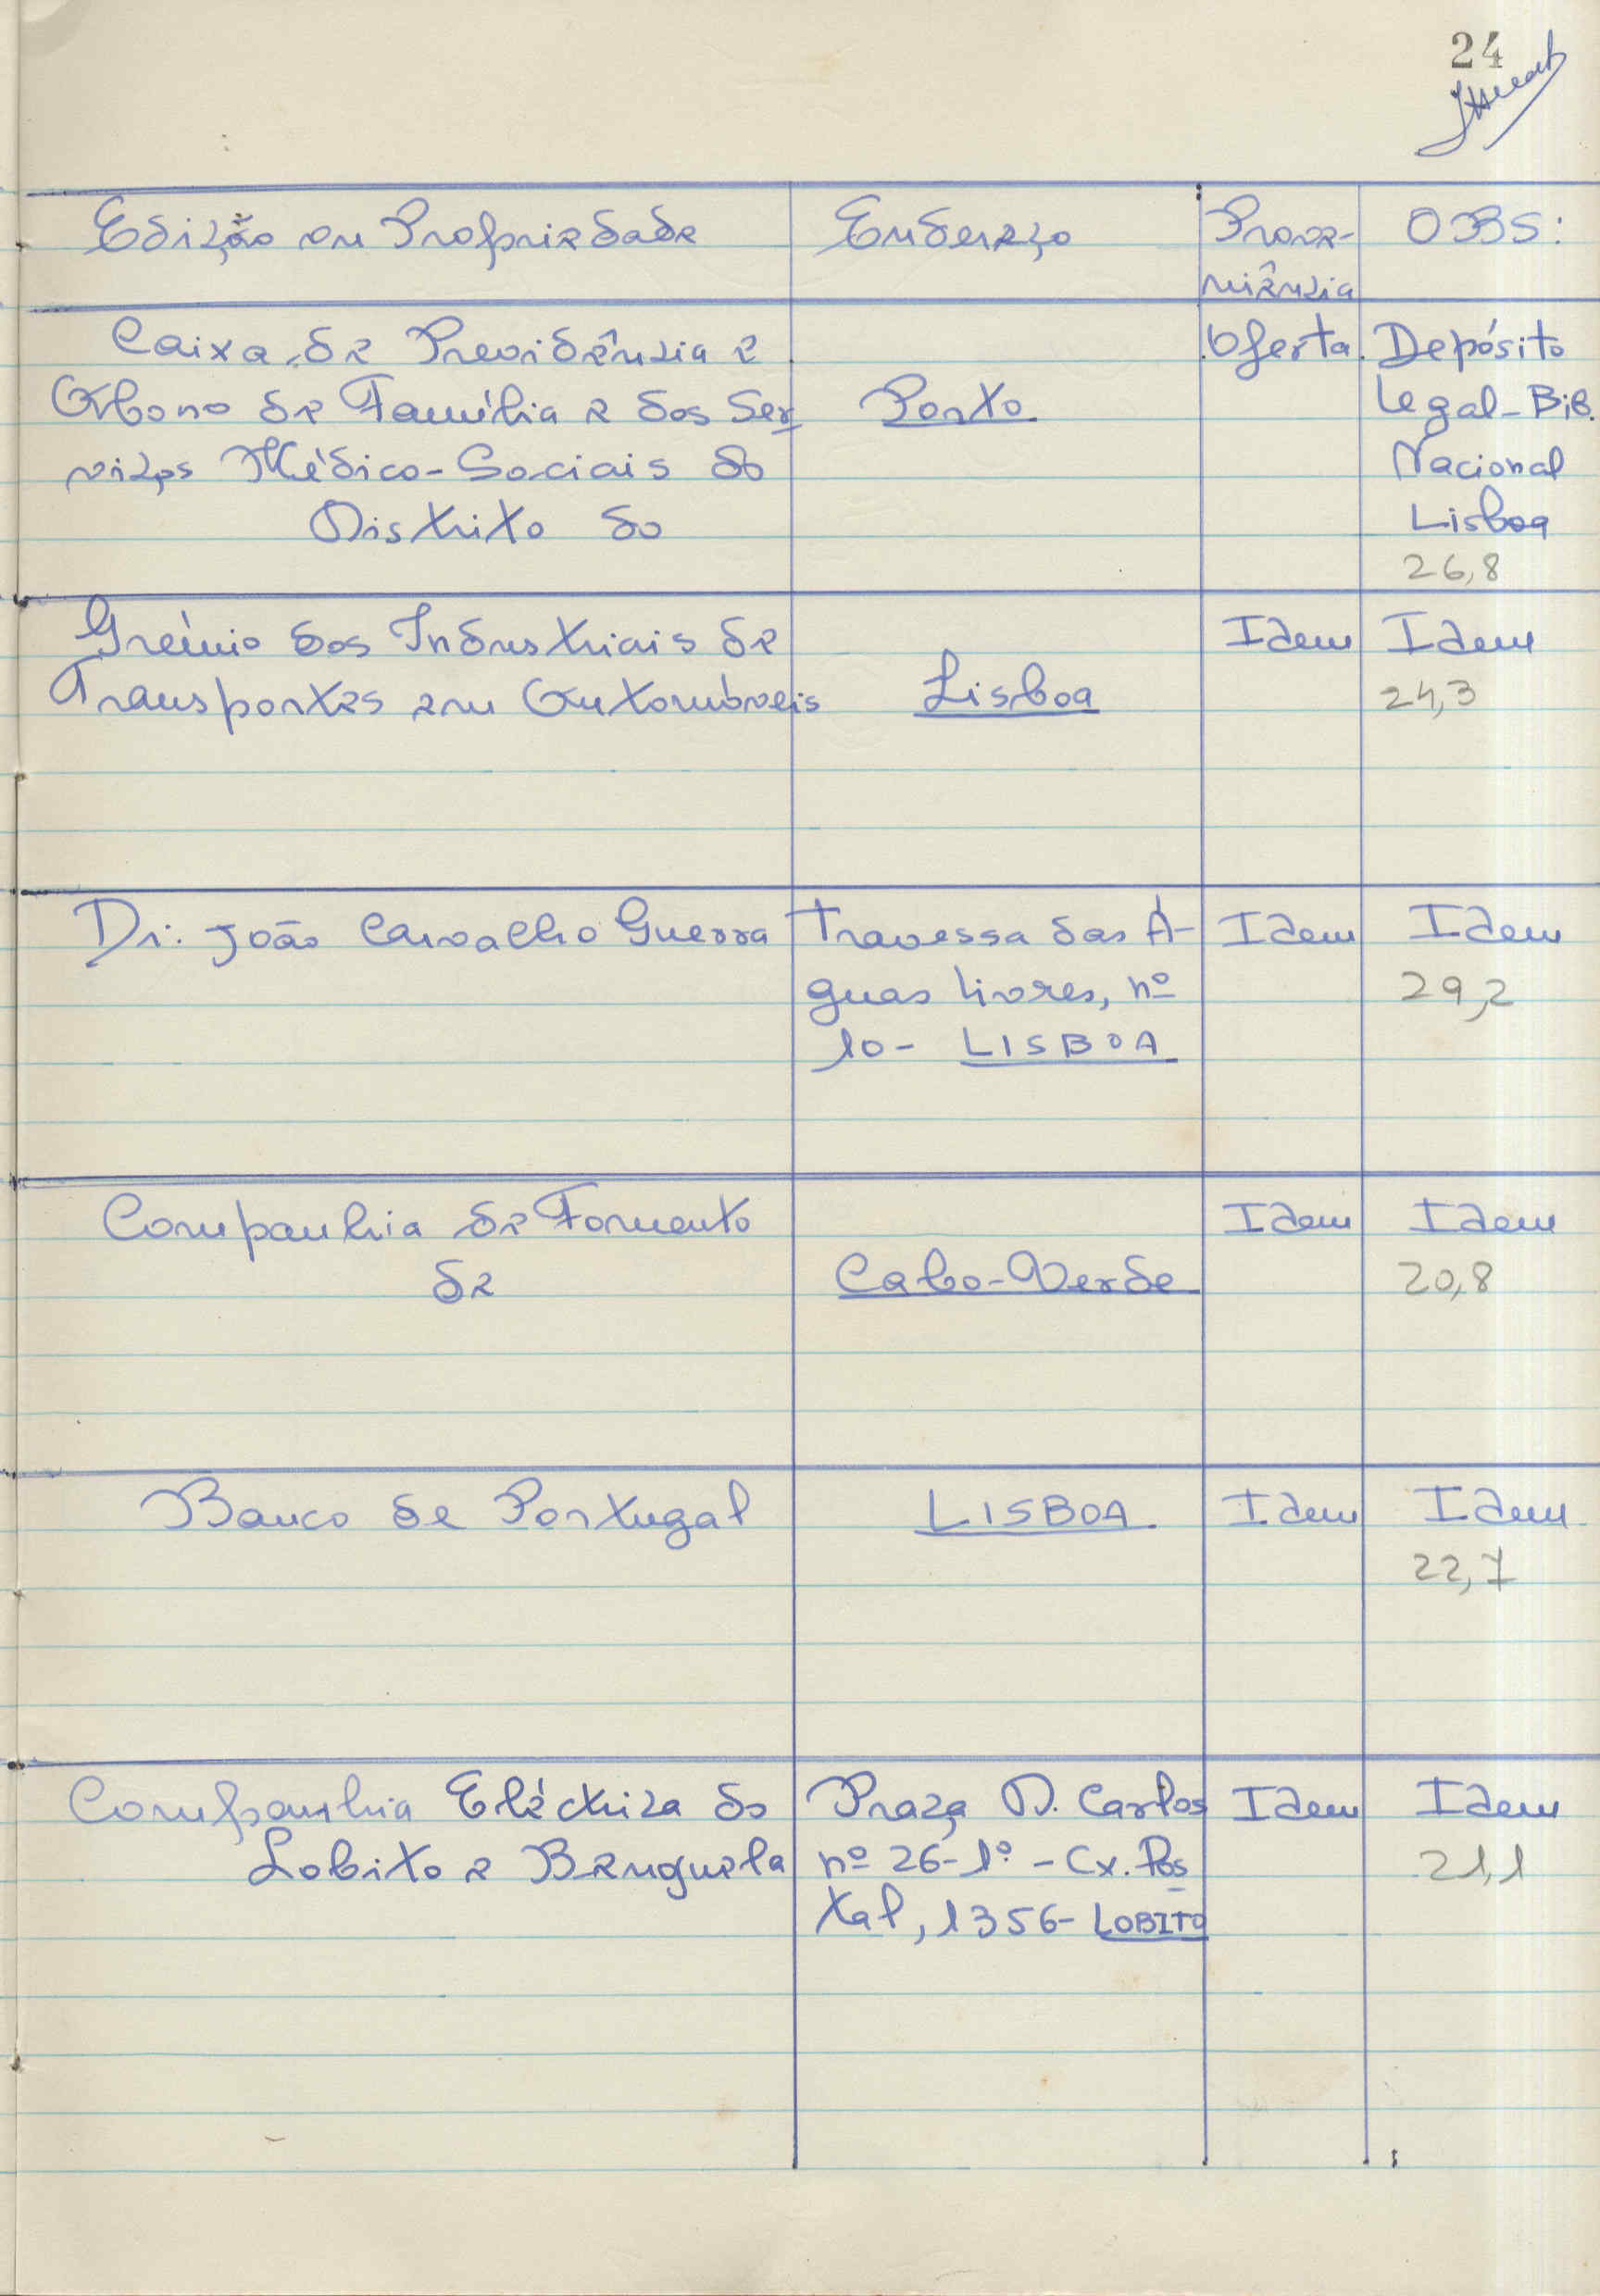 24
Edição ou Propriedade Endereço Prove- OBS:
niência
Caixa de Previdência e Oferta Depósito
Abono de Família e dos Ser Porto Legal - Bib.
viços Médico-Sociais do Nacional
Distrito do Lisboa
26,8
Grémio dos Industriais de Idem Idem
Transportes em Automóveis Lisboa 24,3
Dr. João Carvalho Guerra Travessa das Á- Idem Idem
guas Livres, nº 29,2
10- LISBOA
Companhia de Fomento Idem Idem
de Cabo-Verde 20,8
Banco de Portugal LISBOA Idem Idem
22,7
Companhia Eléctrica do Praça D. Carlos Idem Idem
Lobito e Benguela nº 26-1º - Cx. Pos 21,1
tal, 1356- LOBITO